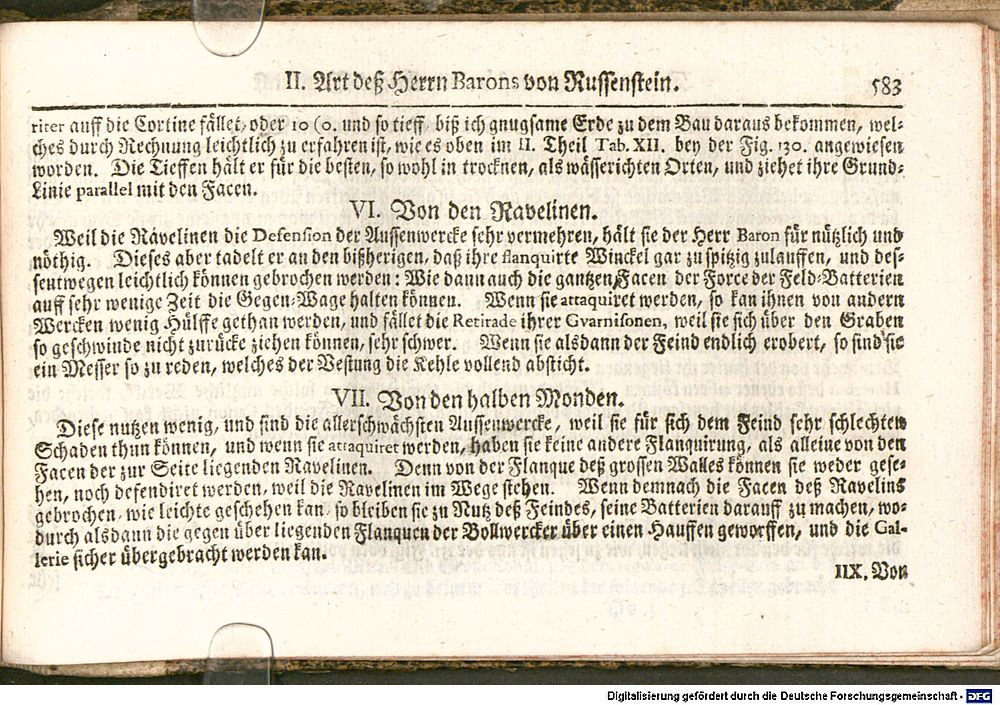 II. Art deß Herrn Barons von Russenstein. 583
riter auff die Cortine fället, oder 10 (0. und so tieff, biß ich gnugsame Erde zu dem Bau daraus bekommen, wel-
ches durch Rechnung leichtlich zu erfahren ist, wie es oben im II. Theil Tab. XII. bey der Fig. 130. angewiesen
worden. Die Tieffen hält er für die besten, so wohl in trocknen, als wässerichten Orten, und ziehet ihre Grund-
Linie parallel mit den Facen.
VI. Von den Ravelinen.
Weil die Ravelinen die Defension der Aussenwercke sehr vermehren, hält sie der Herr Baron für nützlich und
nöthig. Dieses aber tadelt er an den bißherigen, daß ihre flanquirte Winckel gar zu spitzig zulauffen, und des-
sentwegen leichtlich können gebrochen werden: Wie dann auch die gantzen Facen der Force der Feld-Batterien
auff sehr wenige Zeit die Gegen-Wage halten können. Wenn sie attaquiret werden, so kan ihnen von andern
Wercken wenig Hülffe gethan werden, und fället die Retirade ihrer Gvarnisonen, weil sie sich über den Graben
so geschwinde nicht zurücke ziehen können, sehr schwer. Wenn sie alsdann der Feind endlich erobert, so sind sie
ein Messer so zu reden, welches der Vestung die Kehle vollend absticht.
VII. Von den halben Monden.
Diese nutzen wenig, und sind die allerschwächsten Aussenwercke, weil sie für sich dem Feind sehr schlechten
Schaden thun können, und wenn sie attaquiret werden, haben sie keine andere Flanquirung, als alleine von den
Facen der zur Seite liegenden Ravelinen. Denn von der Flanque deß grossen Walles können sie weder gese-
hen, noch defendiret werden, weil die Ravelinen im Wege stehen. Wenn demnach die Facen deß Ravelins
gebrochen, wie leichte geschehen kan, so bleiben sie zu Nutz deß Feindes, seine Batterien darauff zu machen, wo-
durch alsdann die gegen über liegenden Flanquen der Bollwercker über einen Hauffen geworffen, und die Gal-
lerie sicher übergebracht werden kan.
IIX. Von
Digitalisierung gefördert durch die Deutsche Forschungsgemeinschaft - DFG